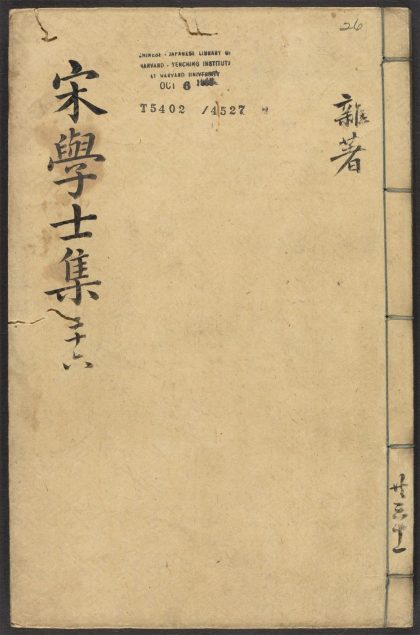 26
CHINESE - JAPANESE LIBRARY OF
HARVARD - YENCHING INSTITUTE
AT HARVARD UNIVERSITY
OCT 6
T5402 /4527
雜著
宋學士集 二十六